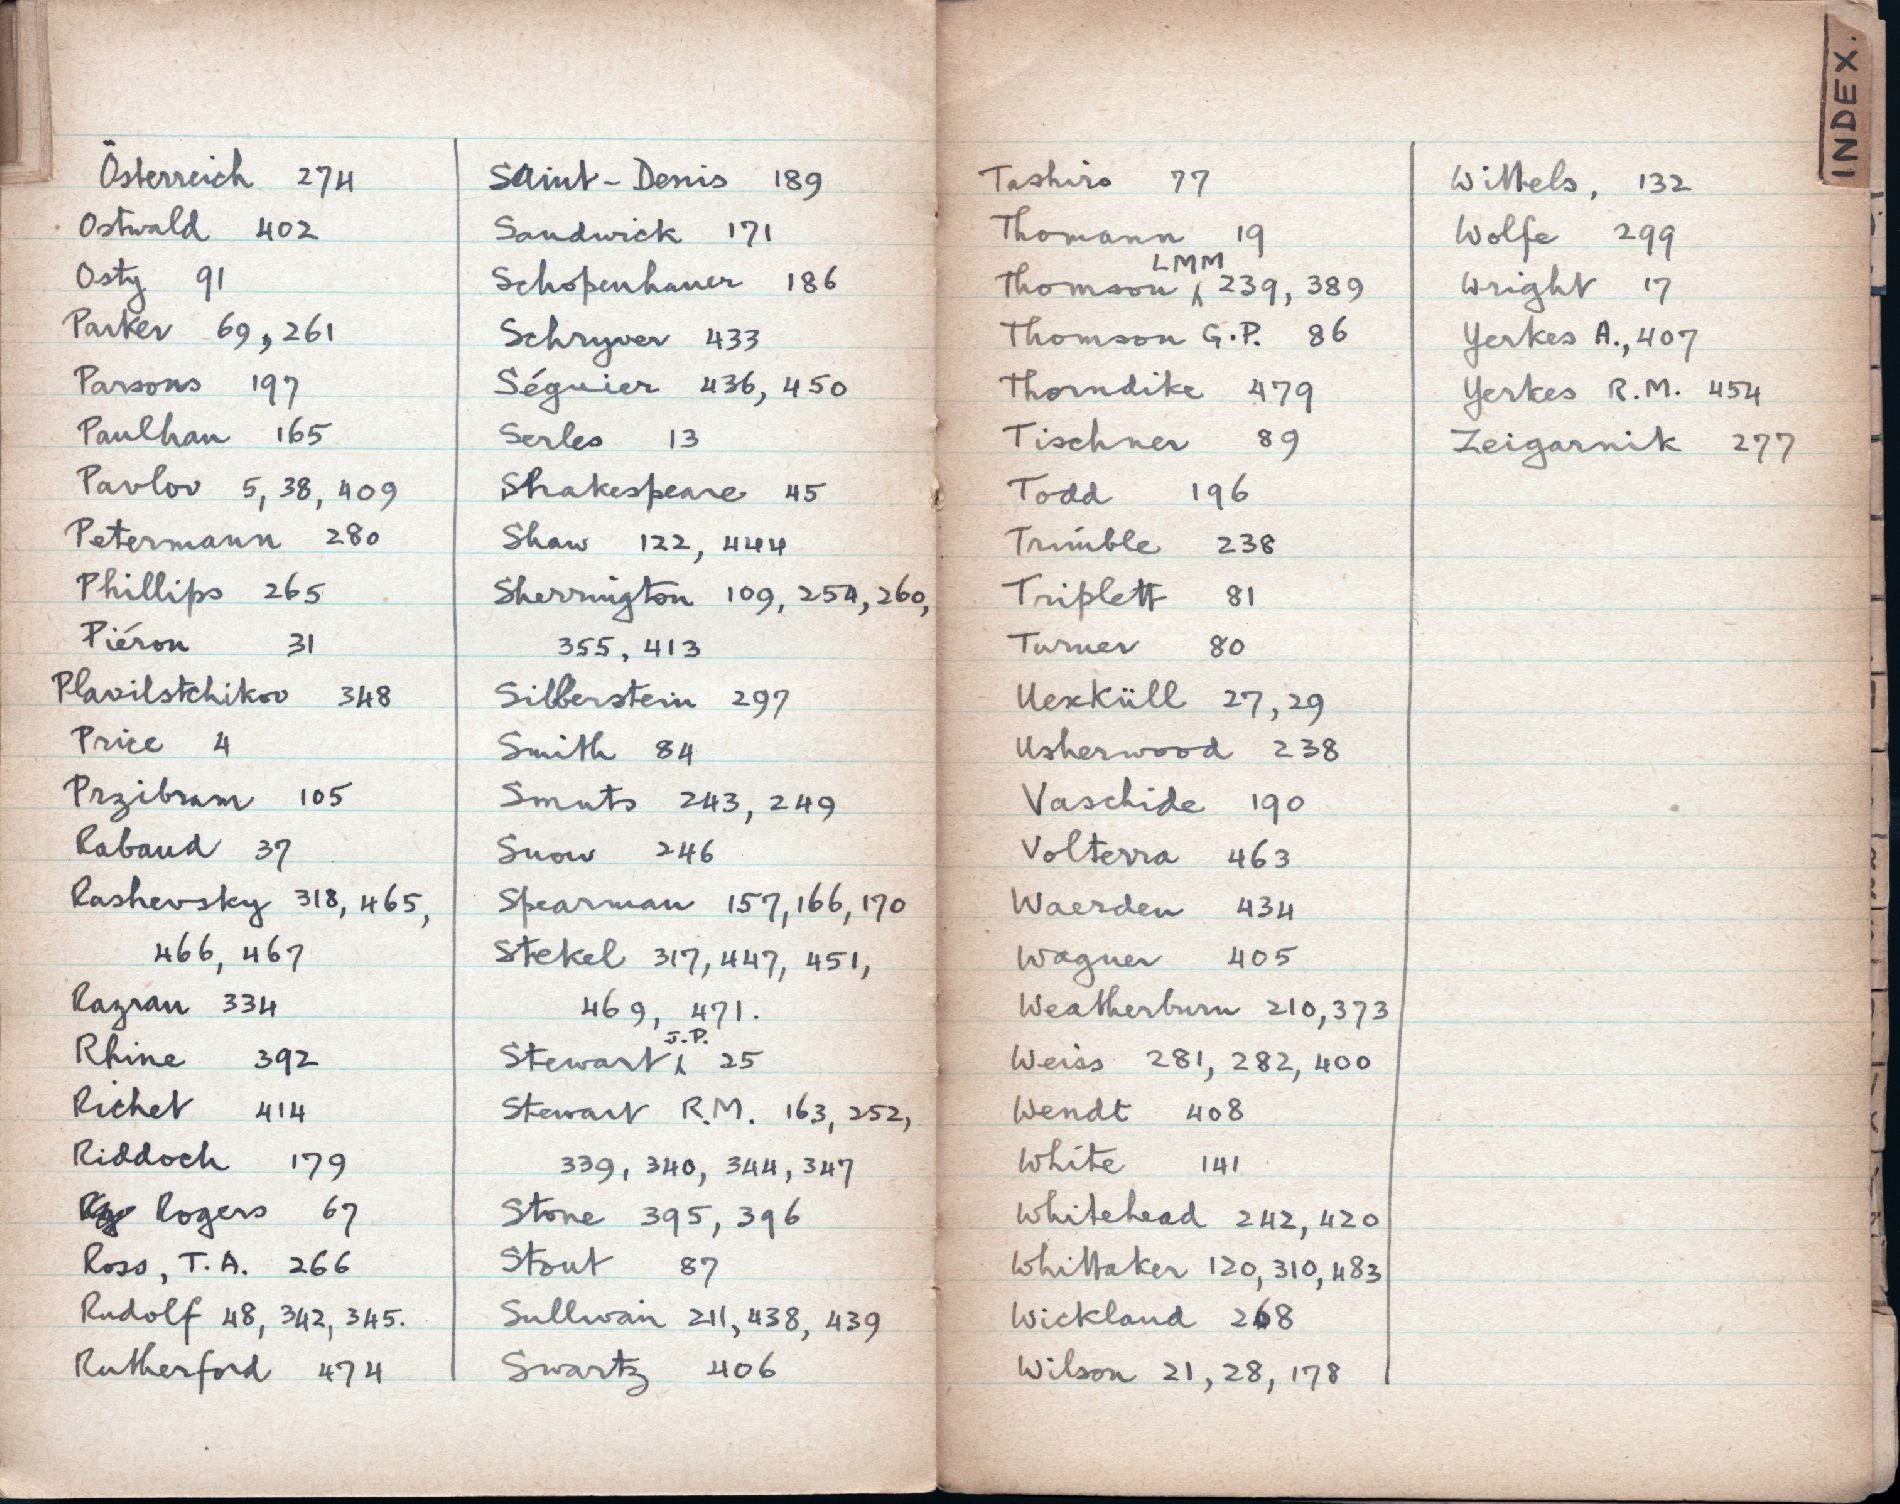 Österreich 274
Ostwald 402
Osty 91
Parker 69, 261
Parsons 197
Paulhan 165
Pavlov 5, 38, 409
Petermann 280
Phillips 265
Piéron 31
Plavilstchikov 348
Price 4
Przibram 105
Rabaud 37
Rashevsky 318, 465,
466, 467
Razran 334
Rhine 392
Richet 414
Riddoch 179
Rogers 67
Ross, T.A. 266
Rudolf 48, 342, 345.
Rutherford 474
Saint-Denis 189
Sandwick 171
Schopenhauer 186
Schryver 433
Séguier 436, 450
Serles 13
Shakespeare 45
Shaw 122, 444
Sherrington 109, 254, 260,
355, 413
Silberstein 297
Smith 84
Smuts 243, 249
Snow 246
Spearman 157, 166, 170
Stekel 317, 447, 451,
469, 471.
Stewart J.P. 25
Stewart R.M. 163, 252,
339, 340, 344, 347
Stone 395, 396
Stout 87
Sullivan 211, 438, 439
Swartz 406
Tashiro 77
Thomann 19
Thomson LMM 239, 389
Thomson G.P. 86
Thorndike 479
Tischner 89
Todd 196
Trimble 238
Triplett 81
Turner 80
Uexküll 27, 29
Usherwood 238
Vaschide 190
Volterra 463
Waerden 434
Wagner 405
Weatherburn 210, 373
Weiss 281, 282, 400
Wendt 408
White 141
Whitehead 242, 420
Whittaker 120, 310, 483
Wickland 268
Wilson 21, 28, 178
Wittels, 132
Wolfe 299
Wright 17
Yerkes A., 407
Yerkes R.M. 454
Zeigarnik 277
INDEX.